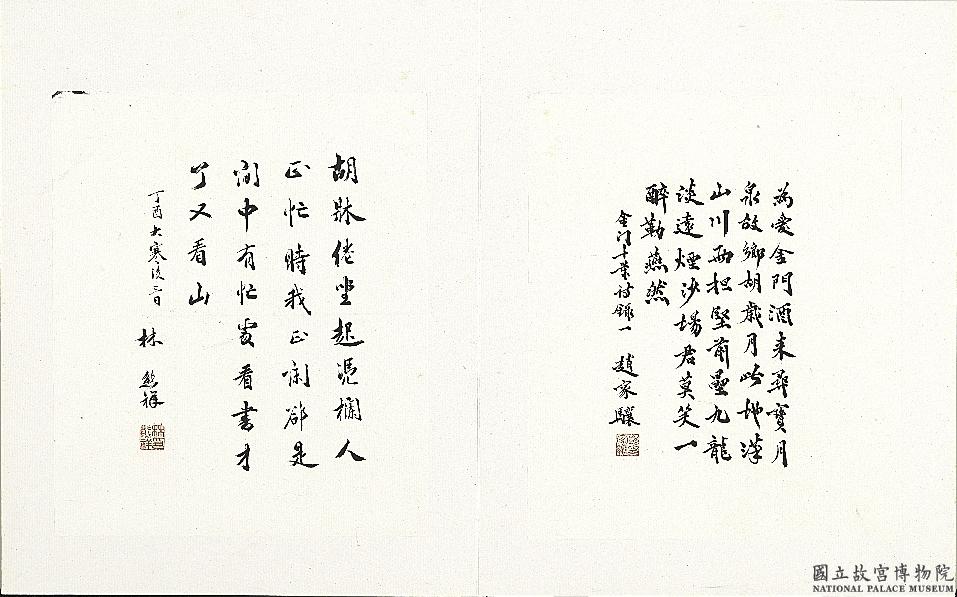 為愛金門酒來尋寶月
泉故鄉胡歲月此地漢
山川兩担堅前壘九龍
淡遠煙沙場君莫笑一
醉勒燕然
金门十葉詩錄一 趙家驤
胡牀倦坐起憑欄人
正忙時我正閑卻是
閒中有忙處看書才
了又看山
丁酉大寒後日 林熊祥
國立故宮博物院
NATIONAL PALACE MUSEUM